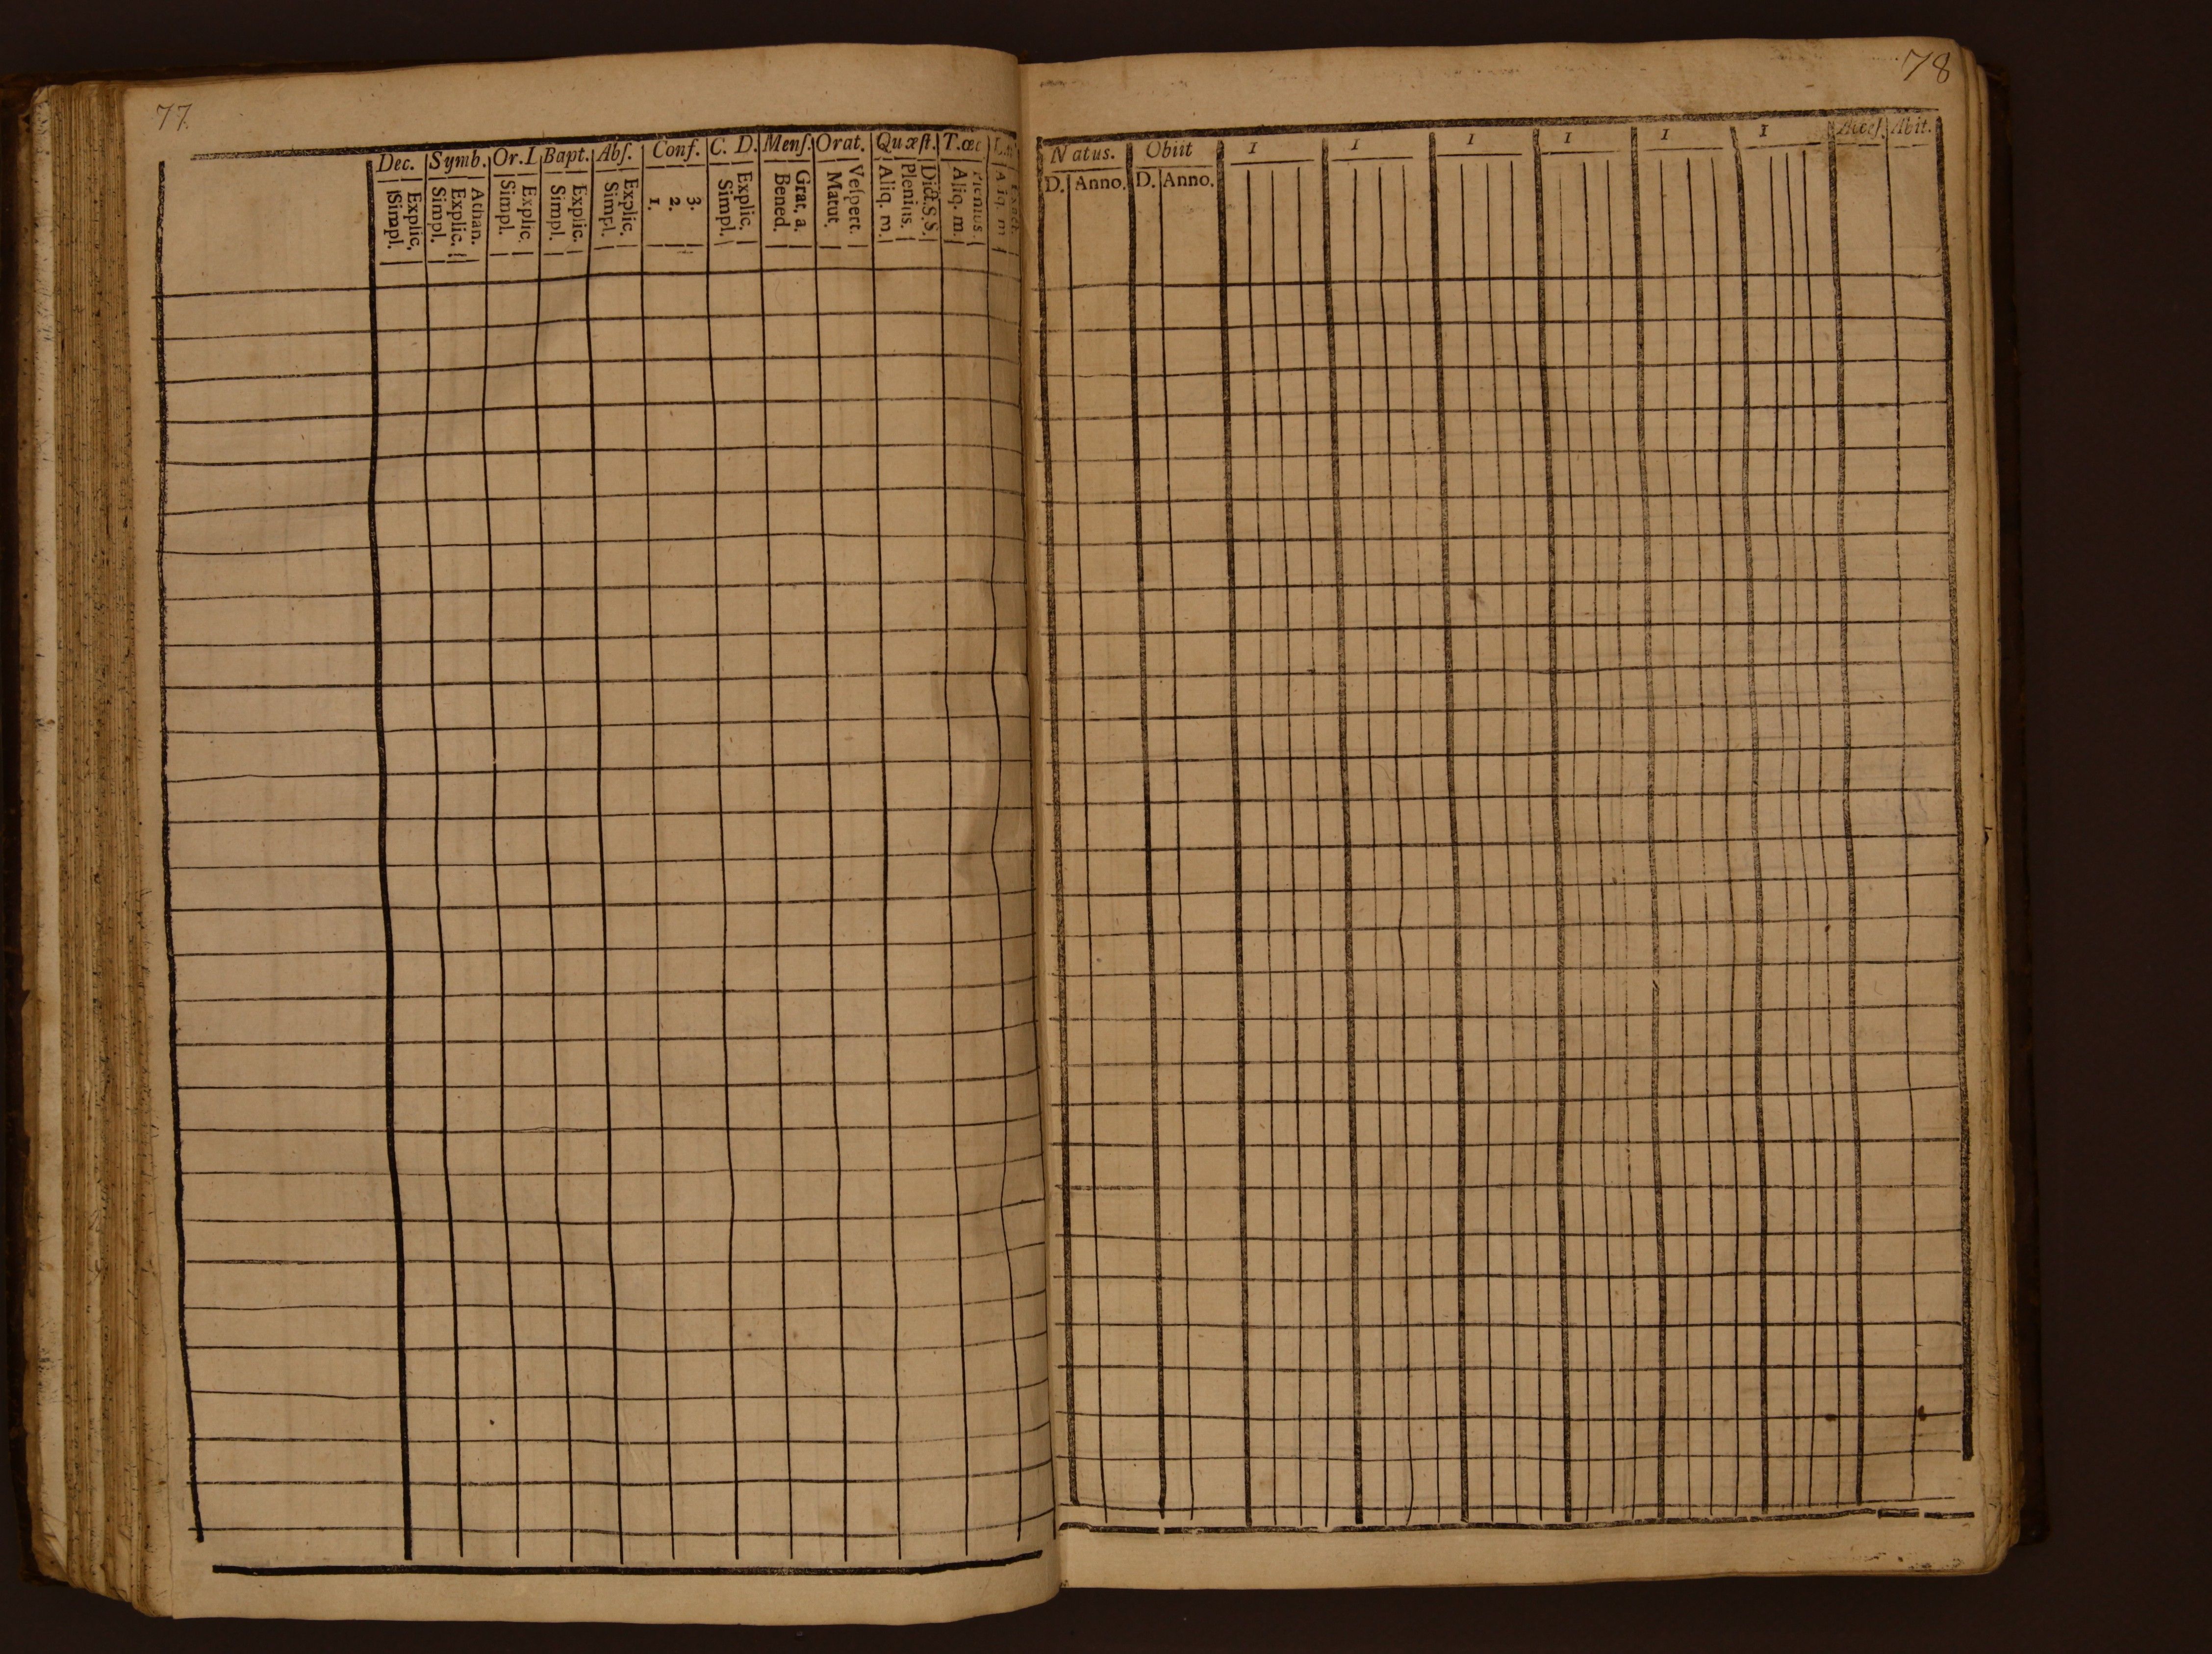 77
Dec. Symb. Or.I Bapt. Abſ. Conf. C. D. Menſ. Orat. Quæſt. T.œc
Explic. Simpl.
Athan. Explic. Simpl.
Explic. Simpl.
Explic. Simpl.
Explic. Simpl.
3. 2. 1.
Explic. Simpl.
Grat. a. Bened.
Veſpert. Matut.
Dict.S.S. Plenius. Aliq. m.
Plenius. Aliq. m.
78
Natus. Obiit 1 1 1 1 1 1 Acceſ. Abit.
D. Anno. D. Anno.